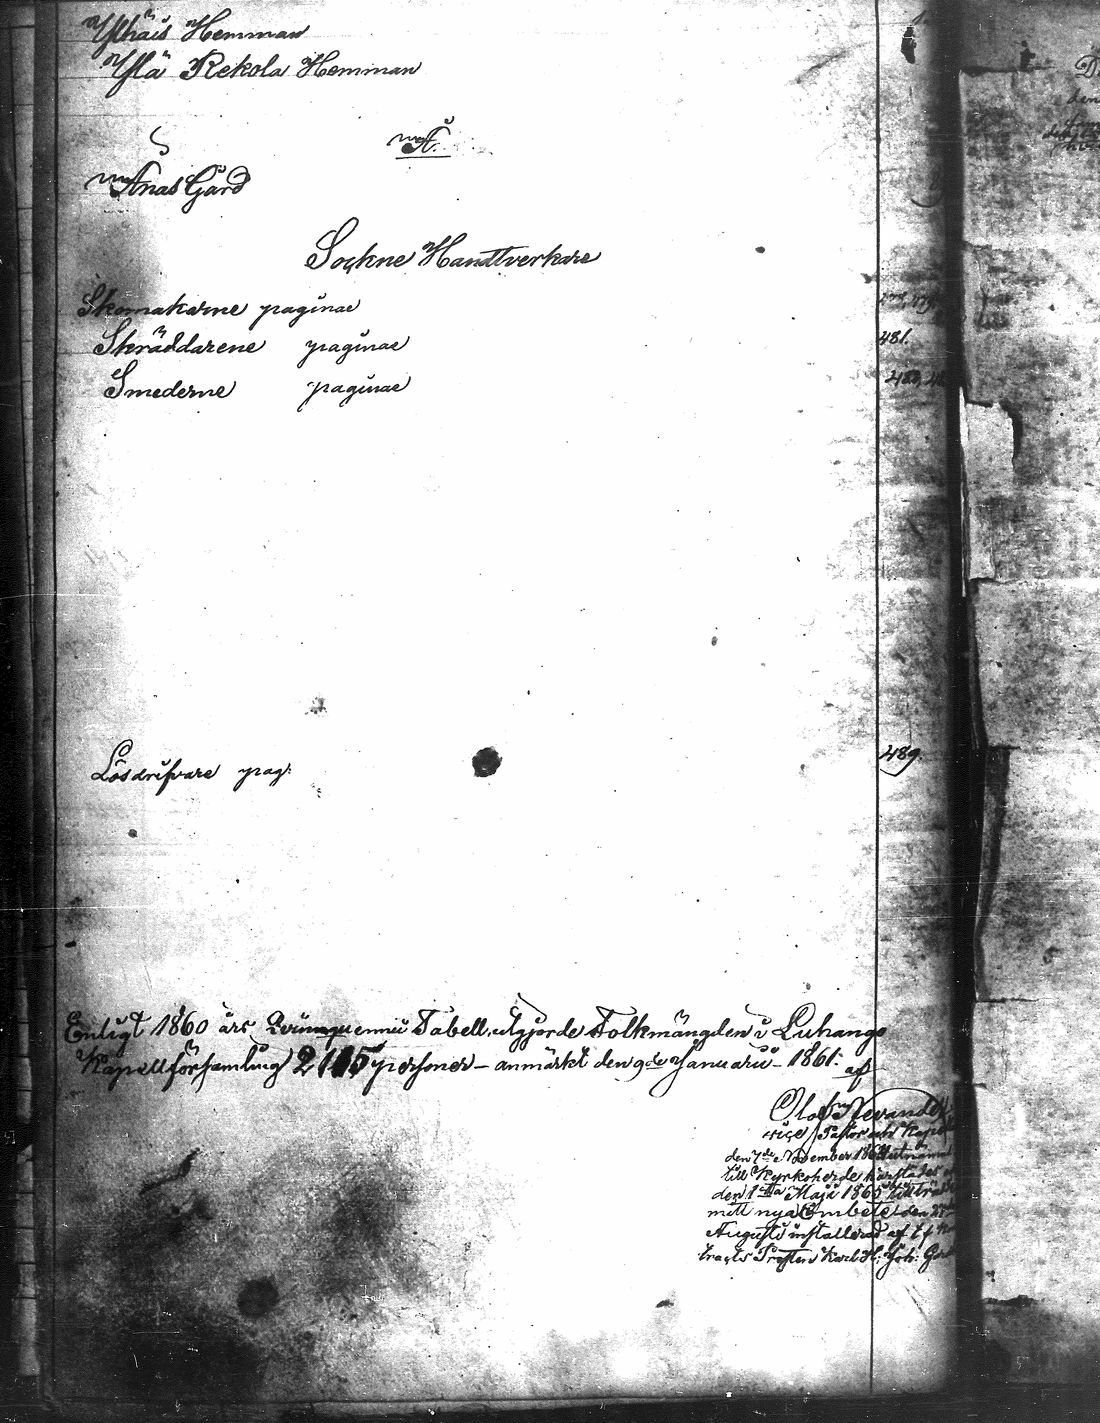 Ylhäis Hemman
Ylä Rekola Hemman
Å.
Ånas Gård
Sockne Handtverkare
Skomakarne paginae
Skräddarene paginae 481.
Smederne paginae
Lösdrifvare pag: 489.
Enligt 1860 års Quinquennii Tabell, utgjorde Folkmängden i Luhango
Kapellförsamling personer – anmärkt den 9de Januarii – 1861: af
Olof Nevander
vice Pastor och
den 7de November
till Kyrkoherde härstädes
den 1sta Maji 1865 tillträdt
mitt nya Embete den
Augusti installerad af t f
tracts Prosten Karl H: Joh: